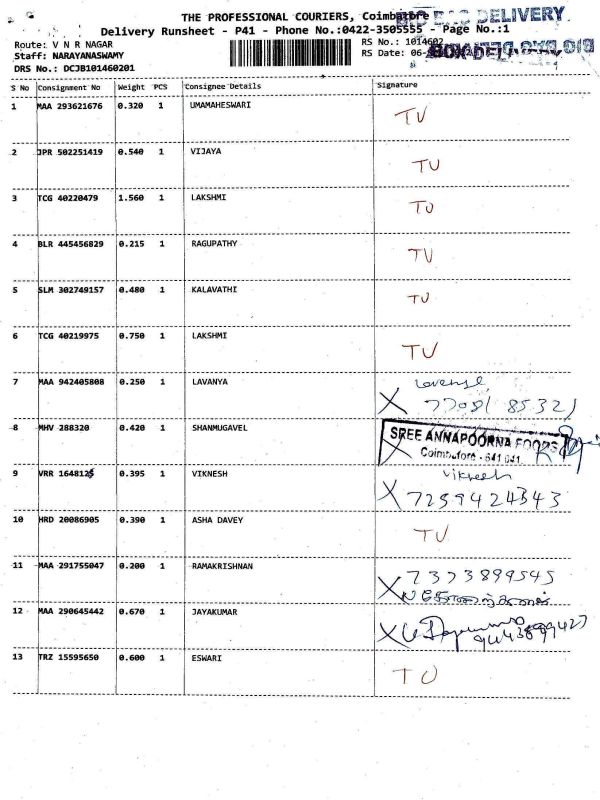 THE PROFESSIONAL COURIERS, Coimbatore
DELIVERY
Delivery Runsheet - P41 - Phone No.:0422-3505555 - Page No.:1
Route: V N R NAGAR
RS No.: 1014602
Staff: NARAYANASWAMY
RS Date: 06-
DRS No.: DCJB101460201
S No Consignment No Weight PCS Consignee Details Signature
1 MAA 293621676 0.320 1 UMAMAHESWARI TU
2 JPR 502251419 0.540 1 VIJAYA TU
3 TCG 40220479 1.560 1 LAKSHMI TU
4 BLR 445456829 0.215 1 RAGUPATHY TU
5 SLM 302749157 0.480 1 KALAVATHI TU
6 TCG 40219975 0.750 1 LAKSHMI TU
7 MAA 942405808 0.250 1 LAVANYA
X 77081 85321
8 MHV 288320 0.420 1 SHANMUGAVEL
SREE ANNAPOORNA FOODS
Coimbatore - 641 041.
9 VRR 1648125 0.395 1 VIKNESH Viknesh
X 7259424343
10 HRD 20086905 0.390 1 ASHA DAVEY TU
11 MAA 291755047 0.200 1 RAMAKRISHNAN
X 7373899545
12 MAA 290645442 0.670 1 JAYAKUMAR
X
13 TRZ 15595650 0.600 1 ESWARI TU